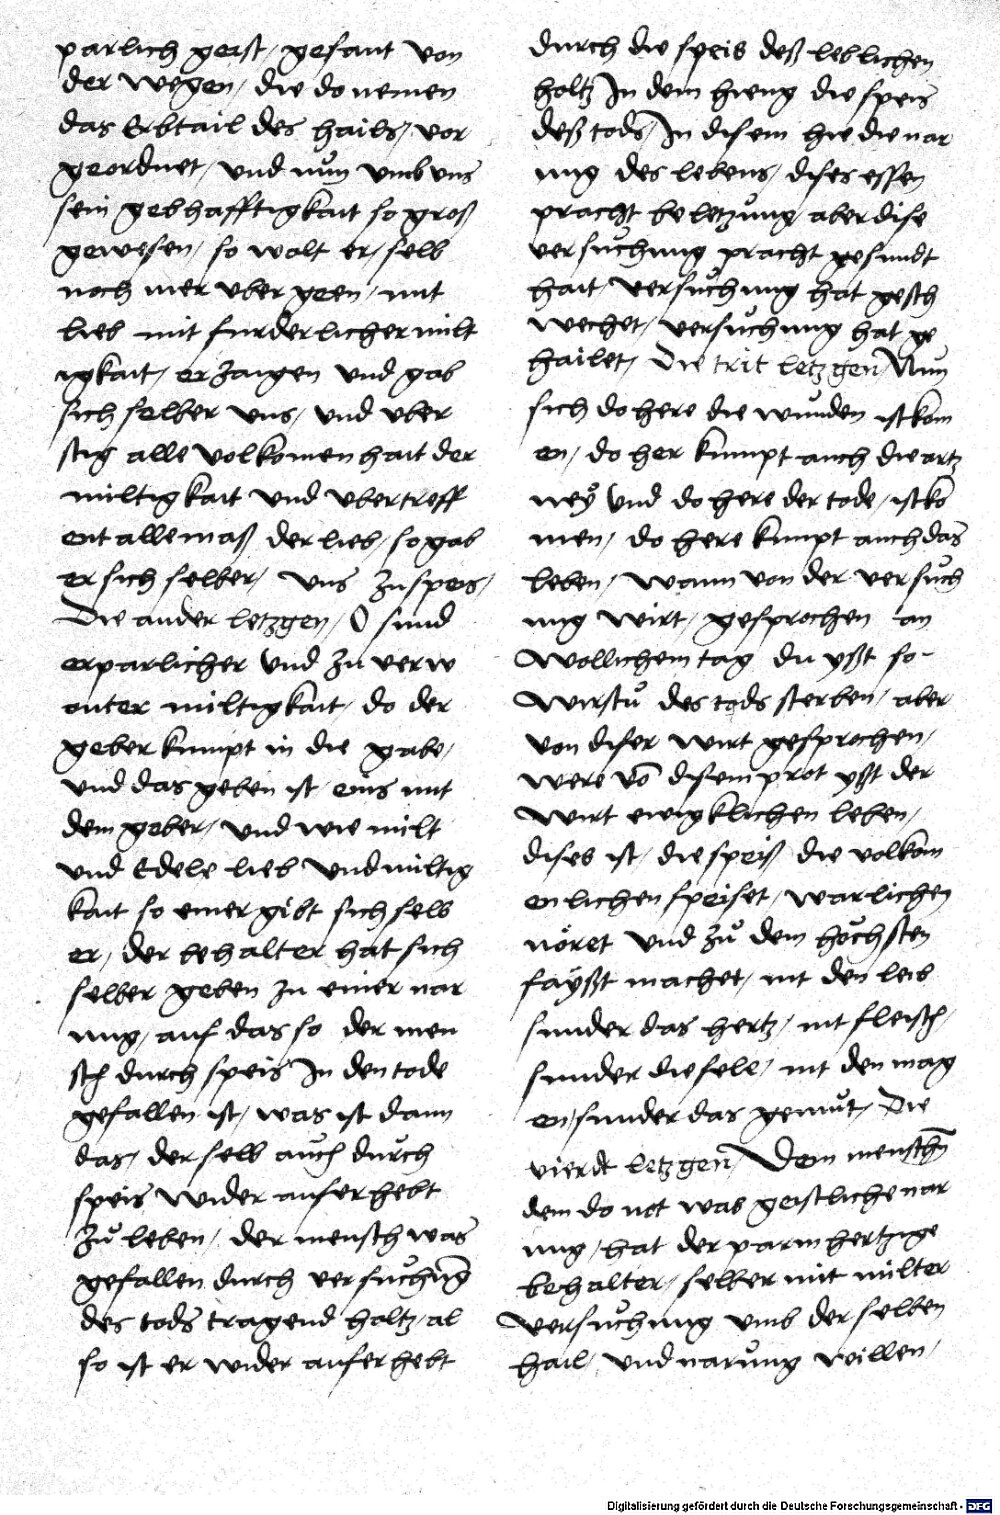 parlich geist / gesant von
der wegen / die do nemen
das Erbtail des hails / vor
geordnet / vnd nun vmb vns
sein gebhafftigkait so groß
gewesen / so wolt er / selb
noch mer vber geen / mit
lieb mit furderlicher milt
igkait / erzaigen vnd gab
sich selber vns / vnd vber
stig alle volkomenhait der
miltigkait vnd vbertreff
ent alle maß der lieb / so gab
er sich selber / vns zu speis /
Die ander letzgen / O sund
erparlicher vnd zu verw
miltigkait / do der
geber kumpt in die gabe /
vnd das geben ist / eins mit
dem geber / vnd wie milt
vnd Edele lieb vnd miltig
kait so einer gibt sich selb
er / der behalter hat sich
selber geben zu einer nar
ung / auf das so der men
sch durch speis In den tode
gefallen ist / was ist dann
das / der selb auch durch
speis wider auferhebt
zu leben / der mensch was
gefallen durch versuchung
des tods tragend holtz / al
so ist er wider auferhebt
durch die speis deß leblichen
holtz In dem hieng die speis
deß tods / In disem hie die nar
ung des lebens / dises essen
pracht beletzung aber dise
versuchung pracht gesundt
hait / versuchung hat gesch
wechet / versuchung hat ge
hailet / Die trit letzgen Nun
sich do here die wunden ist kom
en / do her kumpt auch die artz
ney vnd do here der tode / ist ko
men / do here kumpt auch das
leben / wann von der versuch
ung wirt / gesprochen an
wollichem tag du yßt so
wirstu des tods sterben / aber
von diser wirt gesprochen /
were võ disem prot yßt der
wirt ewigklichen leben /
dises ist / die speiß die volkom
enlichen speiset / warlichen
nöret vnd zů dem höchsten
fayßt machet / nit den leib
sunder das hertz / nit fleisch /
sunder die sele / nit den mag
en / sunder das gemüt / Die
vierdt letzgen / Dem menschen
dem do not was geistliche nar
ung / hat der parmhertzige
behalter / selber mit milter
versuchung vmb der selben
hail / vnd narung willen /
Digitalisierung gefördert durch die Deutsche Forschungsgemeinschaft - DFG